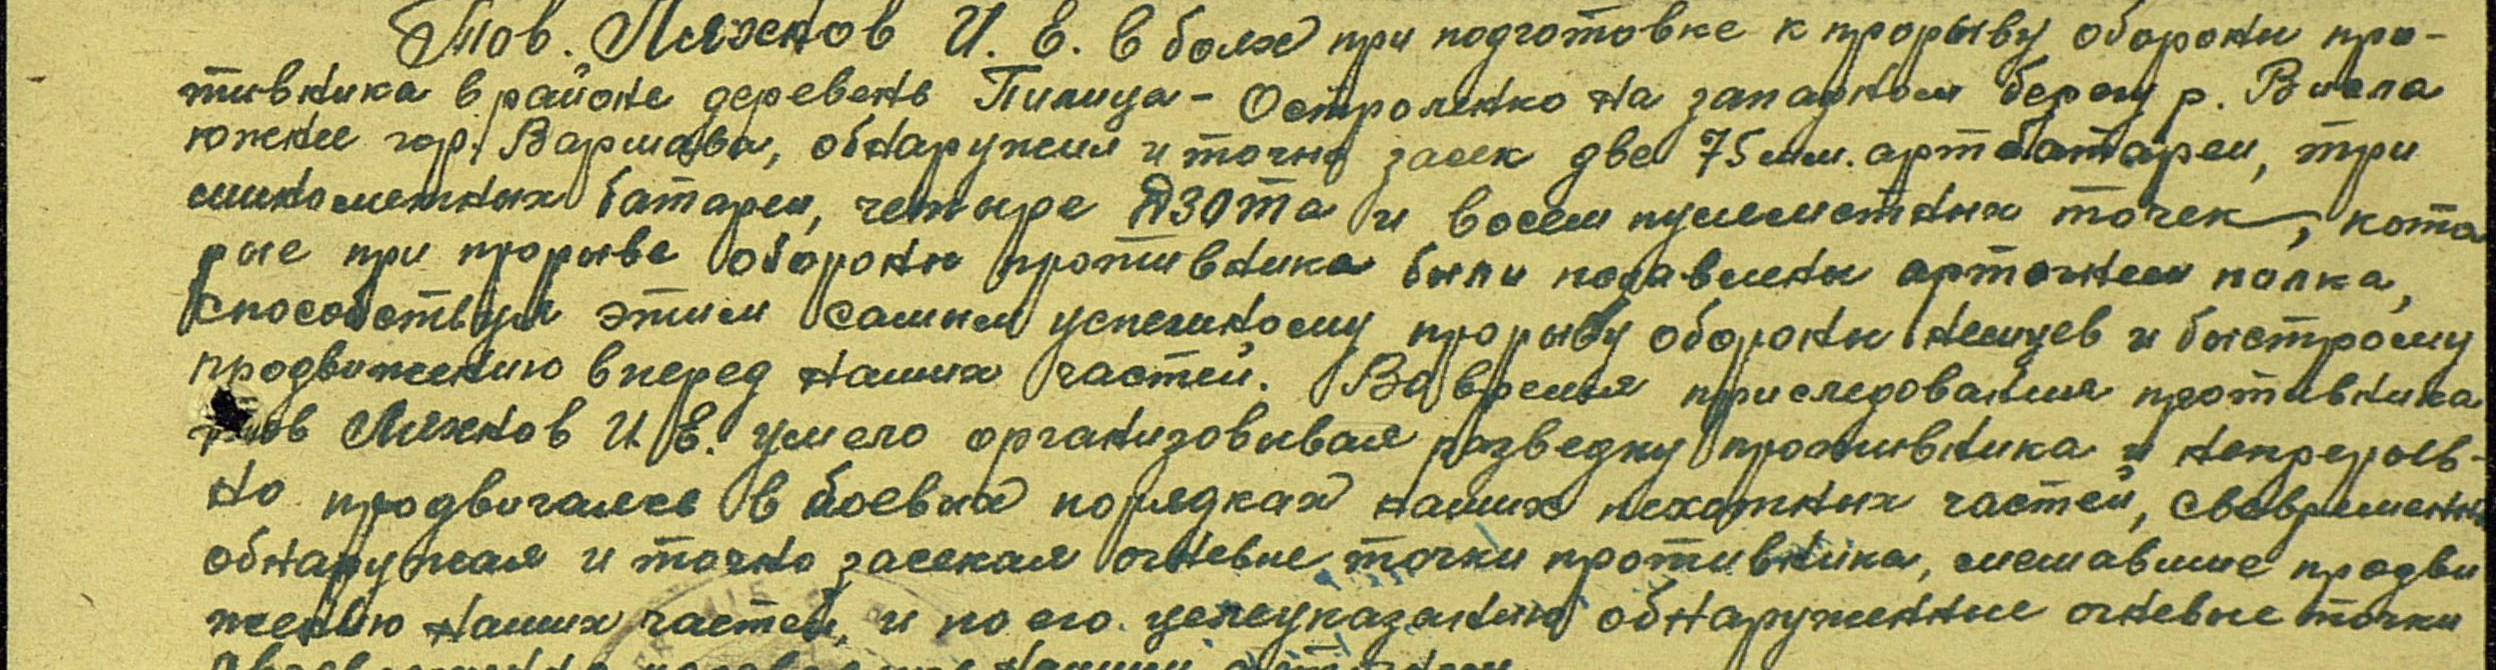 Тов. Ляхнов И. Е. в боях при подготовке к прорыву обороны про-
тивника в районе деревень Пилица - Остроленко на западном берегу р. Висла
южнее гор. Варшава, обнаружил и точно засек две 75 мм. артбатареи, три
минометных батареи, четыре ДЗОТа и восем пулеметных точек, кото
рые при прорыве обороны противника были подавлены артогнем полка,
способствуя этим самым успешному прорыву обороны немцев и быстрому
продвижению вперед наших частей. Во время приследования противника
тов Ляхнов И. Е. умело организовывал разведку противника и непрерыв-
но продвигался в боевых порядках наших пехотных частей, свовременно
обнаружал и точно засекал огневые точки противника, мешавшие продви
жению наших частей, и по его целеуказанию обнаруженные огневые точки